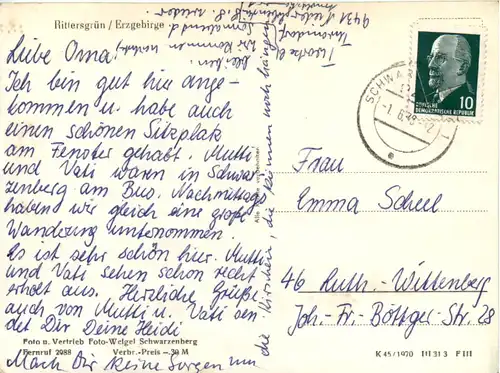 Rittersgrün / Erzgebirge
Liebe Oma!
Ich bin gut hier ange-
kommen u. habe auch
einen schönen Sitzplatz
am Fenster gehabt. Mutti
und Vati waren in Schwar
zenberg am Bus. Nachmittags
haben wir gleich eine große
Wanderung unternommen.
Es ist sehr schön hier. Mutti
und Vati sehen schon recht
erholt aus. Herzliche Grüße
auch von Mutti u. Vati sen
det Dir Deine Heidi
Foto u. Vertrieb Foto-Weigel Schwarzenberg
Fernruf 2988 Verbr.-Preis -,30 M
Mach Dir keine Sorgen um
die Kirschen, die können noch hängen
bleiben.
Wir kommen
Sonnabend
9431
Alle
SCHWA
-1.6.
10
DEUTSCHE
DEMOKRATISCHE REPUBLIK
Frau
Emma Scheel
46 Luth.-Wittenberg
Joh.-Fr.-Böttger-Str. 28
K 45/1970 III 31 3 F III